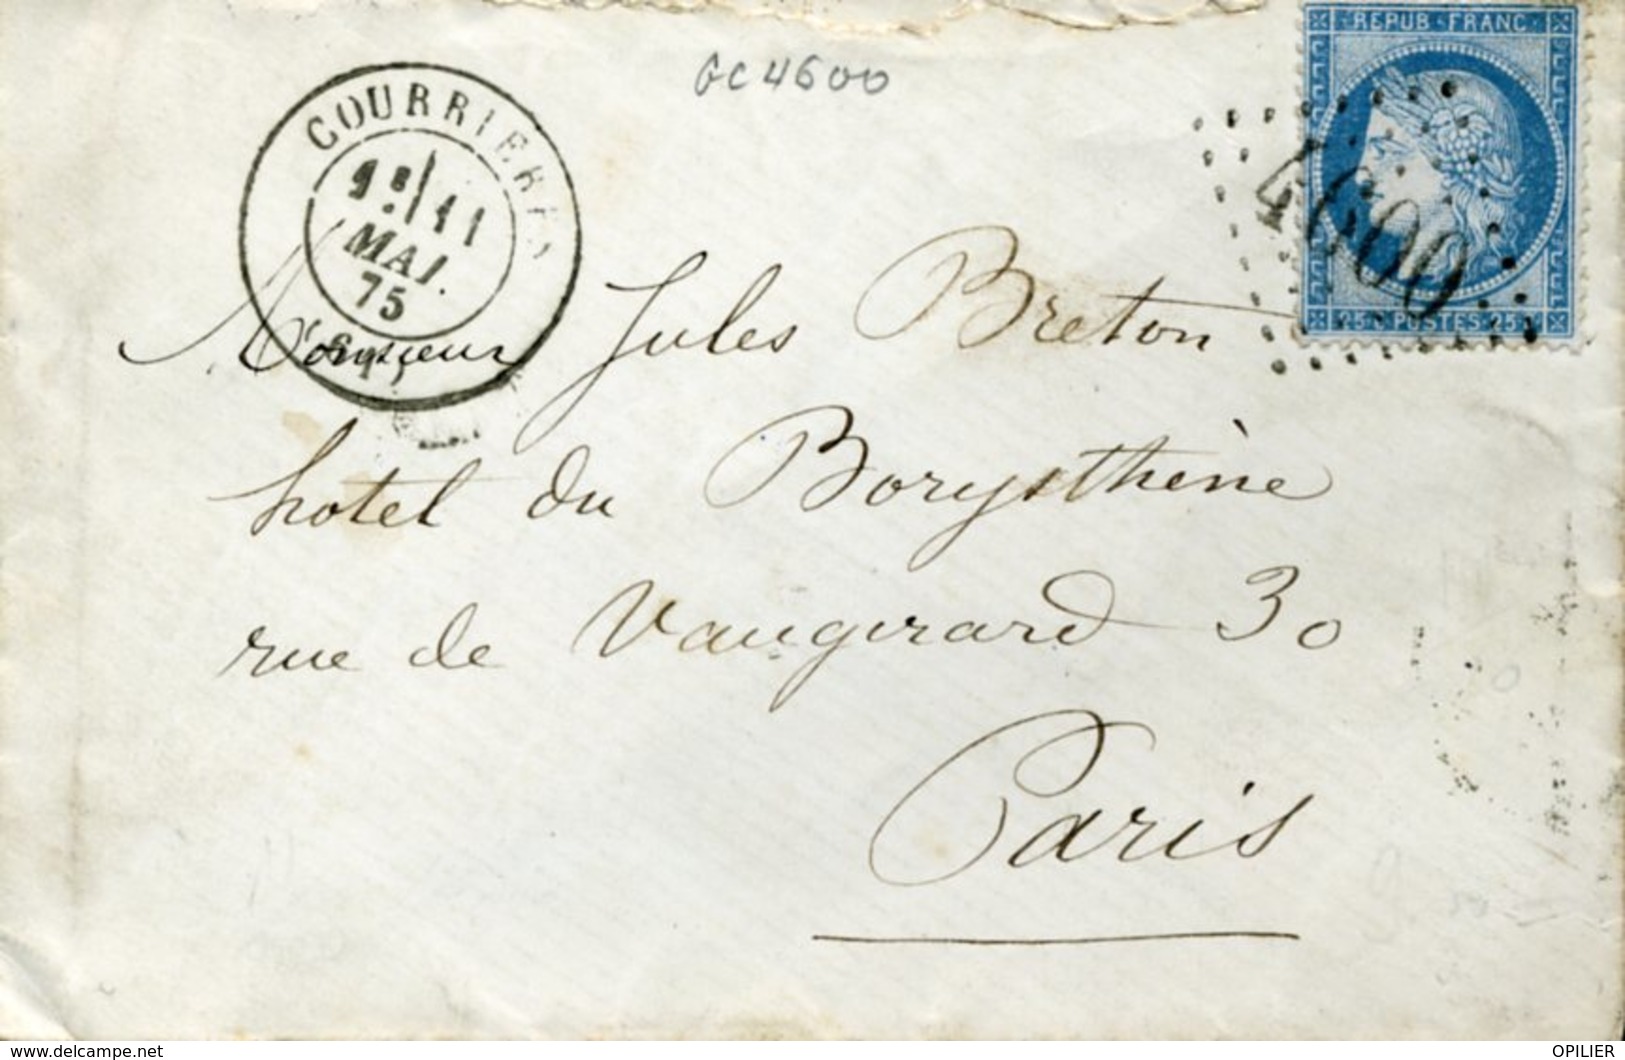 GC 4600
REPUB FRANC
COURRIERES
9E/11
MAI
75
4600
25 C POSTES 25
Monsieur Jules Breton
hotel du Borysthène
rue de Vaugirard 30
Paris
© www.delcampe.net
OPILIER